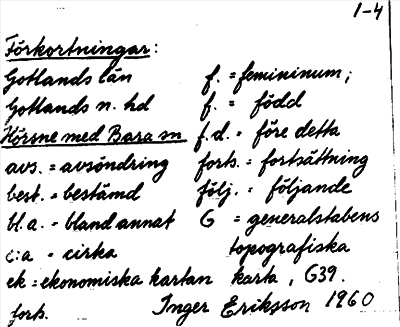 1-4
Förkortningar:
Gotlands län f. = femininum;
Gotlands n. hd f. = född
Hörsne med Bara sn f.d. = före detta
avs. = avsöndring forts. = fortsättning
best. = bestämd följ. = följande
bl.a. = bland annat G = generalstabens
c:a = cirka topografiska
ek = ekonomiska kartan karta, G39.
forts. Inger Eriksson 1960